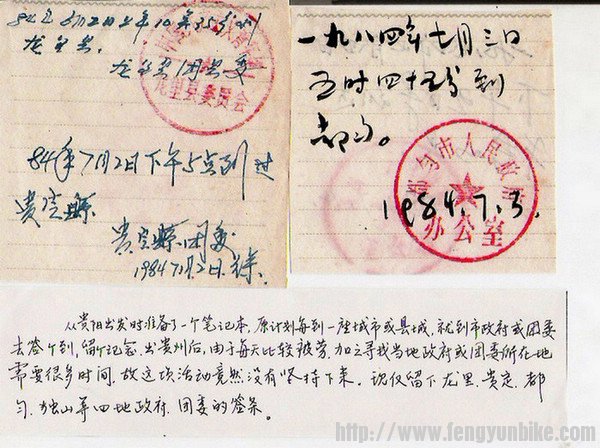 84年7月2日上午10点25分到
龙里县。
龙里县团县委
龙里县委员会
84年7月2日下午5点到过
贵定县
贵定县团委
1984 7月2日
一九八四年七月三日
五时四十五分到
都匀。
都匀市人民政府
办公室
1984.7.3.
从贵阳出发时准备了一个笔记本,原计划每到一座城市或县城,就到市政府或团委
去签个到,留个记念.出贵州后,由于每天比较疲劳.加之寻找当地政府或团委所在地
需要很多时间.故这项活动竟然没有坚持下来.现仅留下龙里.贵定.都
匀.独山等四地政府.团委的签条。
http://www.fengyunbike.com